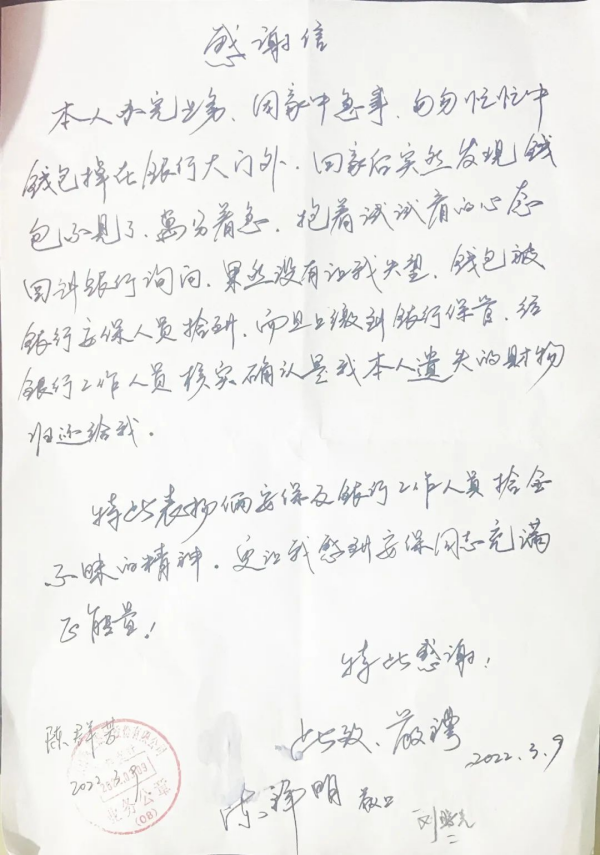 感谢信
本人办完业务、回家中急事、匆匆忙忙中
钱包掉在银行大门外、回家后突然发现钱
包不见了、万分着急、抱着试试看的心态
回到银行询问、果然没有让我失望、钱包被
银行安保人员拾到、而且上缴到银行保管、经
银行工作人员核实确认是我本人遗失的财物
归还给我.
特此表扬俩安保及银行工作人员拾金
不昧的精神.更让我感到安保同志充满
正能量!
特此感谢!
此致、敬礼
2022.3.9
陈群
2023.3.9
业务公章
(08)
陈 明 敬上
刘